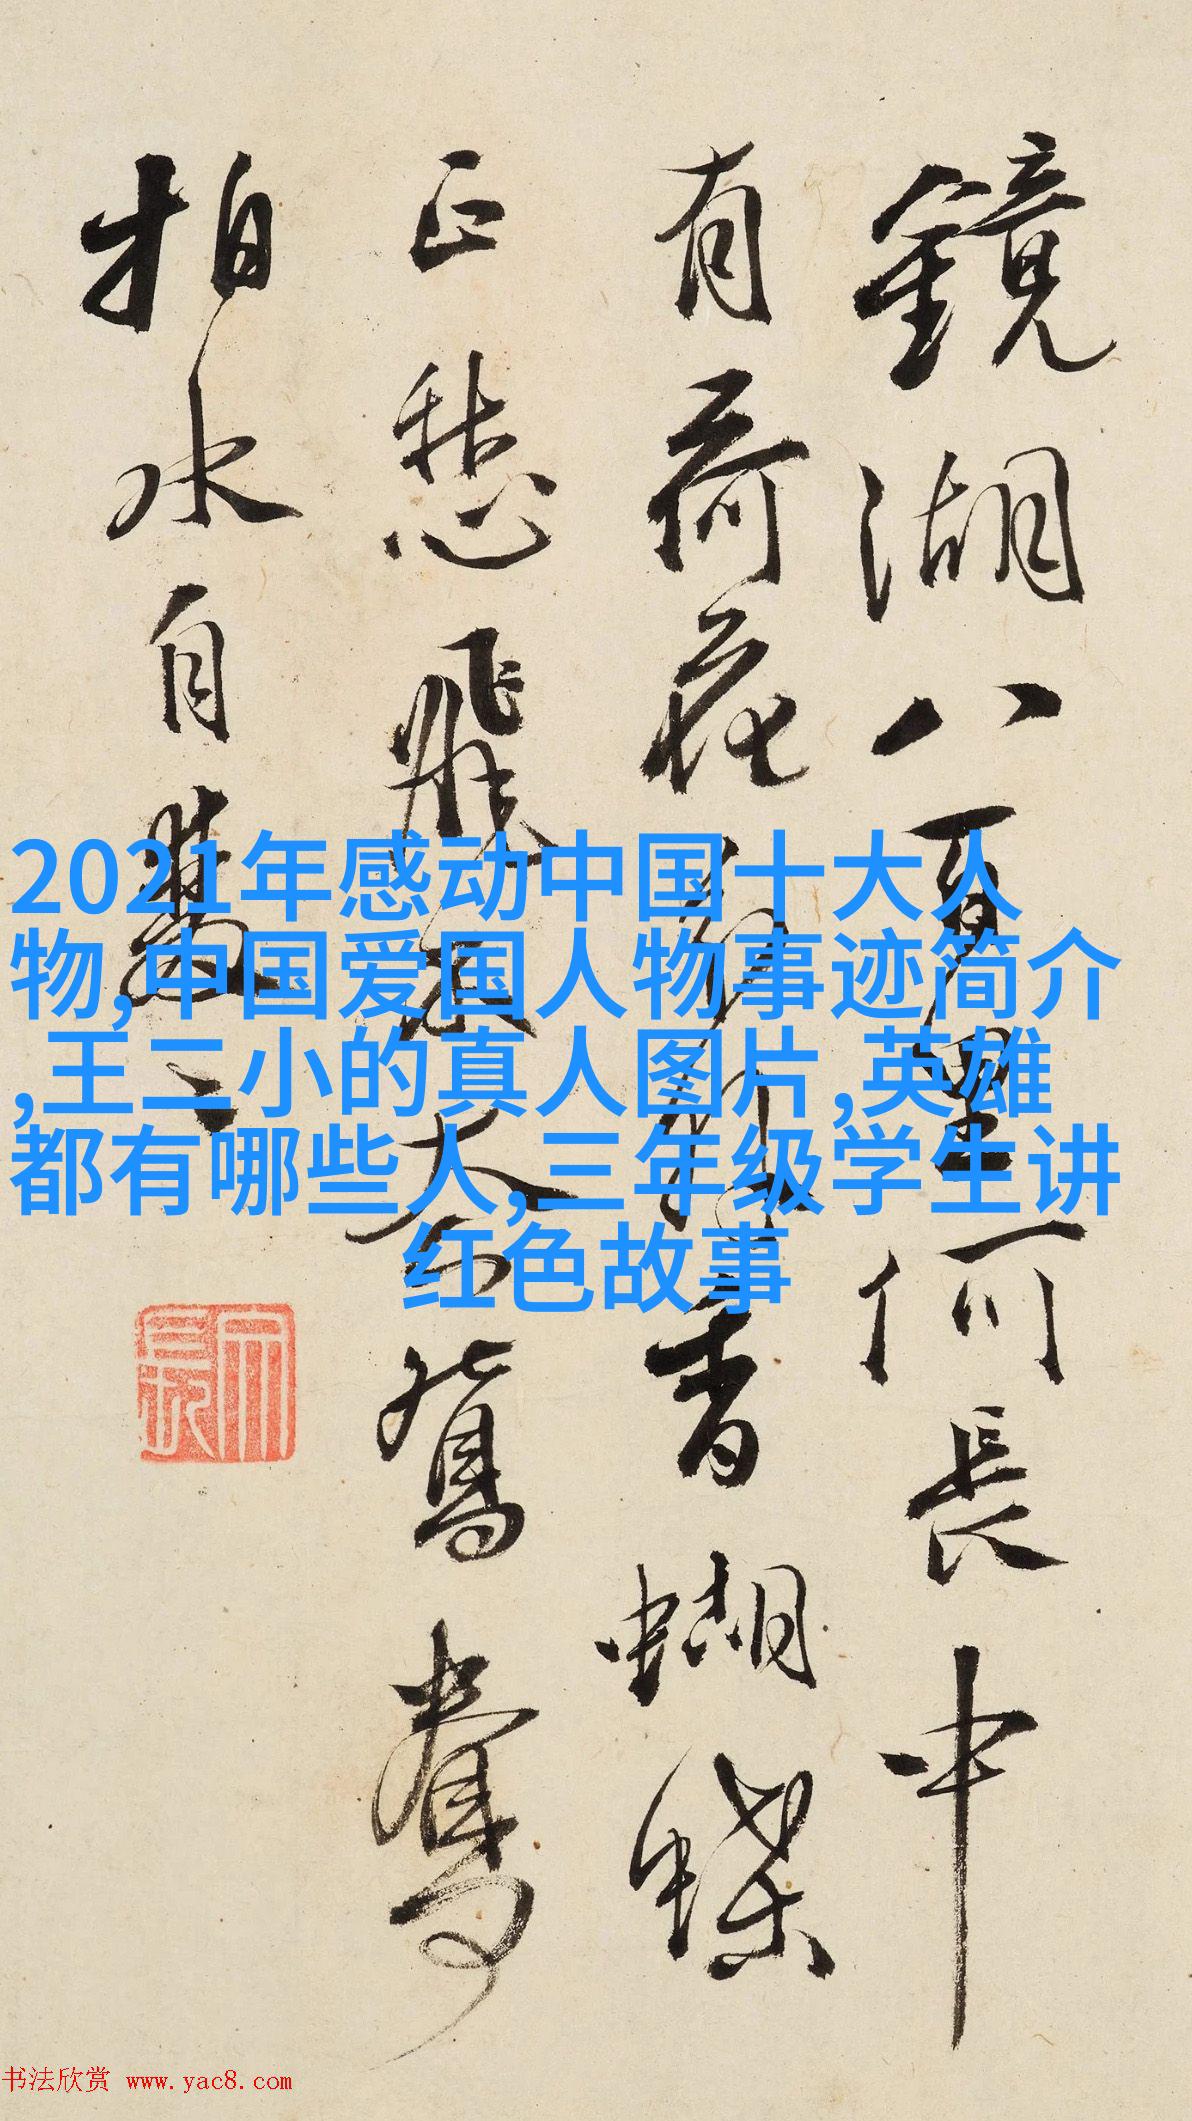 鏡湖八百里何長中
有荷花
香蝴蝶
正愁飛
去鴛鴦
拍水自雙〻
2021年感动中国十大人
物,中国爱国人物事迹简介
,王二小的真人图片,英雄
都有哪些人,三年级学生讲
红色故事
书法欣赏 www.yac8.com